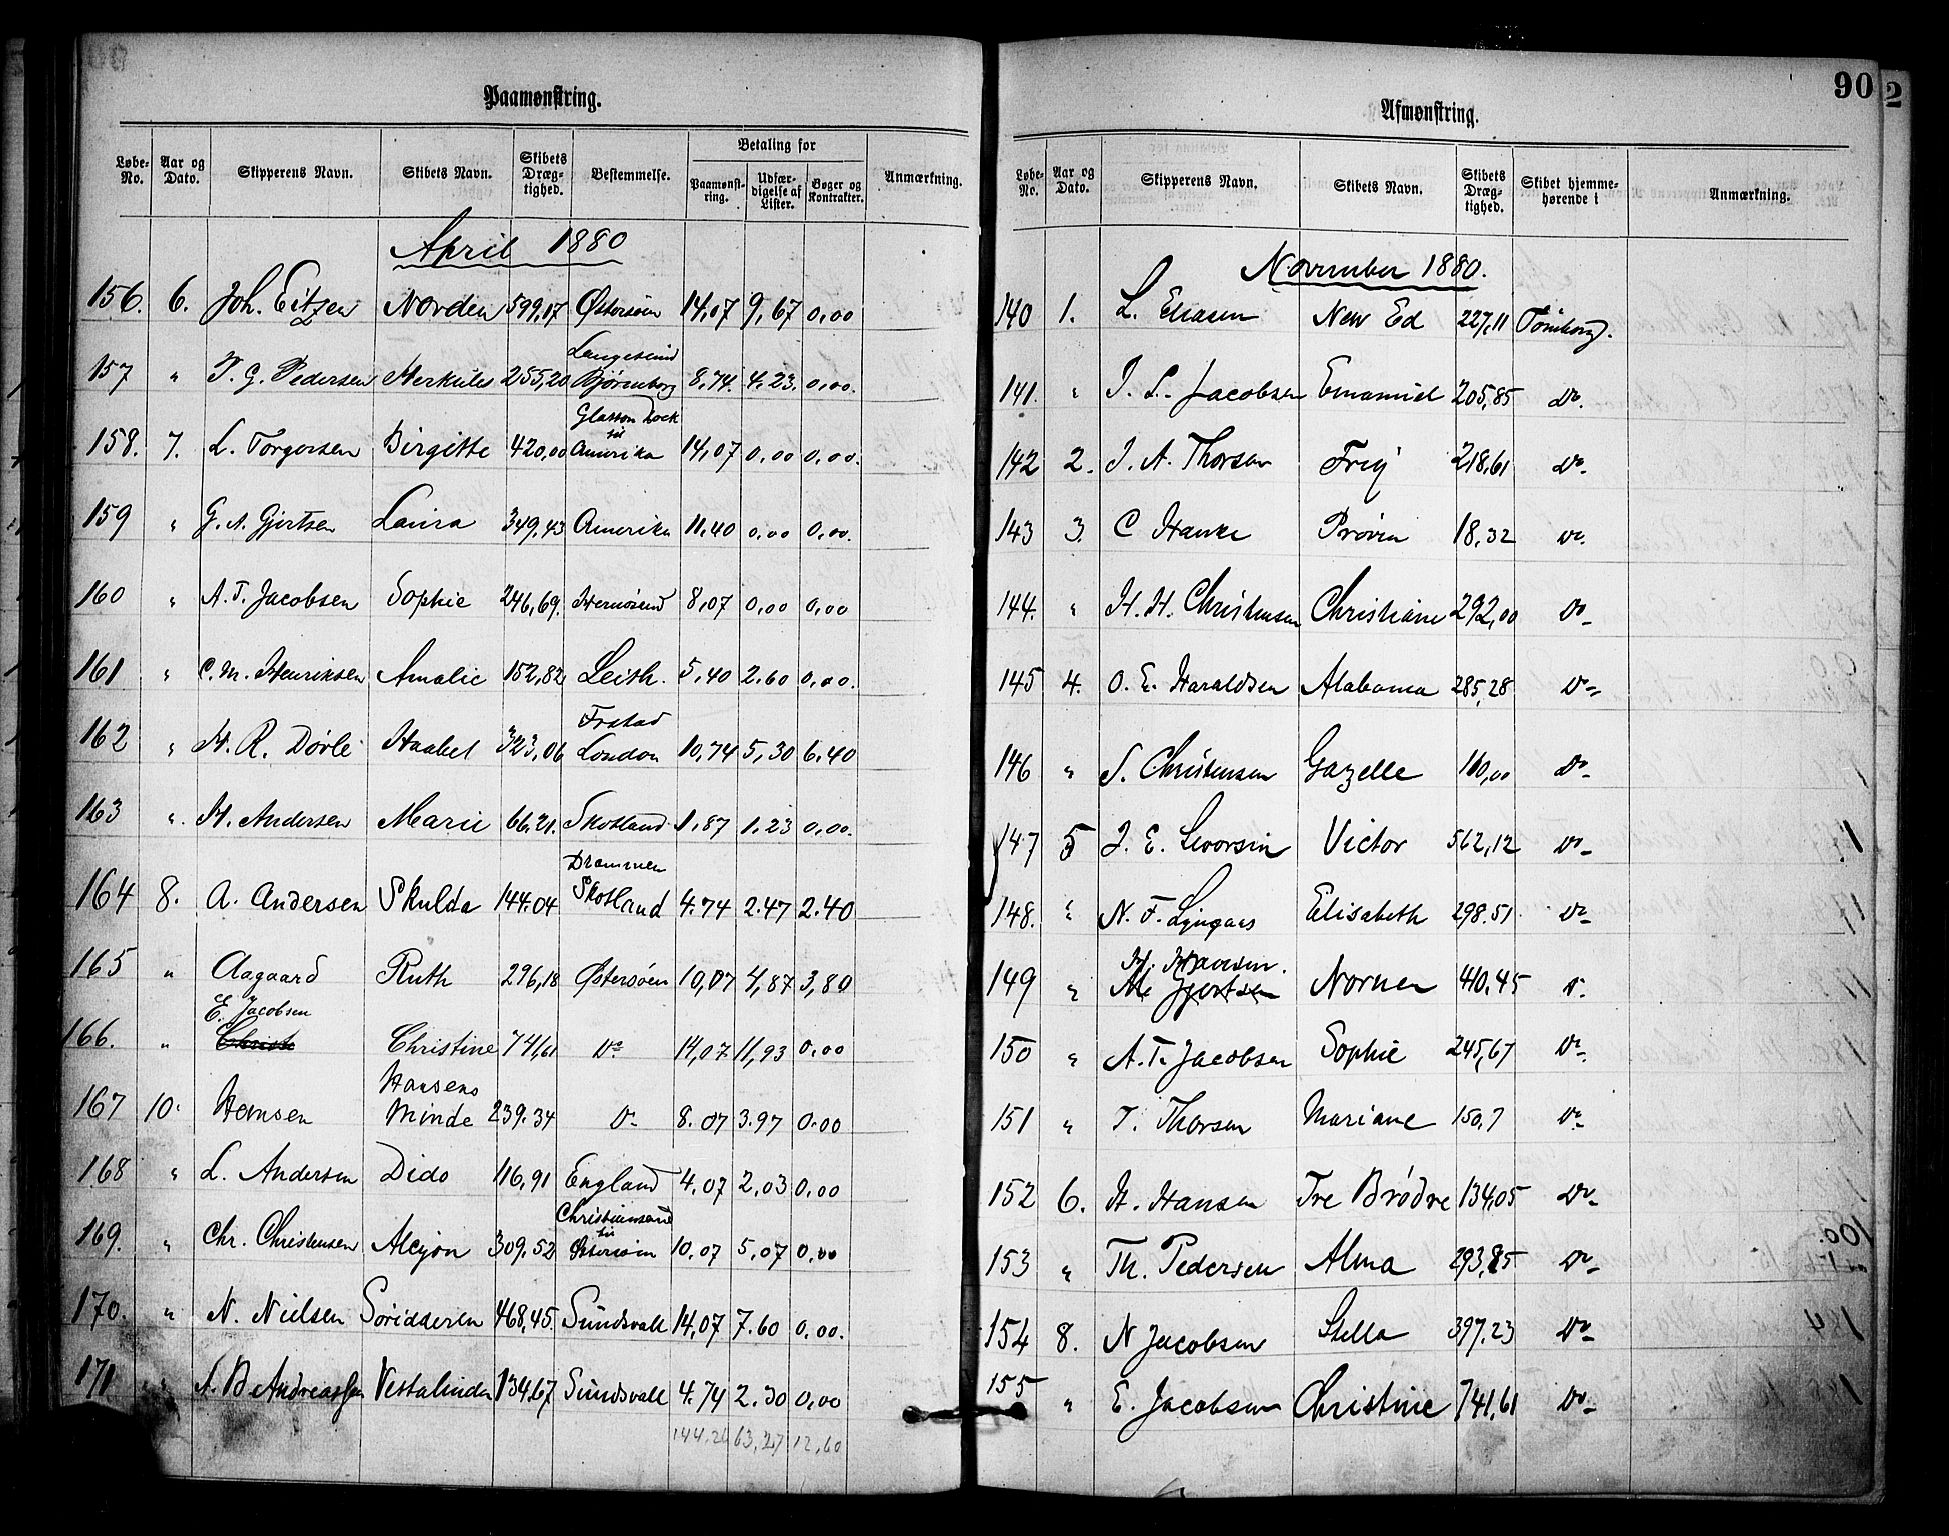 Paamønstring.
Løbe-No. Aar og Dato. Skipperens Navn. Skibets Navn. Skibets Dræg-tighed. Bestemmelse. Betaling for Paamønst-ring. Udfær-digelse af Lister. Bøger og Kontrakter. Anmærkning.
April 1880
156. 6. Joh. Eitzen Norden 599,17 Østersøen 14,07 9,67 0,00
Langesund
157 " P. G. Pedersen Herkules 255,20 Bjørneborg 8,74. 4,23. 0,00.
Glasson Dock
til
158. 7. L. Torgersen Birgitte 420,00 Amerika 14,07 0,00 0,00.
159 " G. A. Gjertsen Laura 349,43 Amerika 11,40 0,00 0,00.
160 " A. T. Jacobsen Sophie 246,69. Hernøsund 8,07 0,00 0,00
161 " C. M. Henriksen Amalie 152,82 Leith. 5,40 2,60 0,00.
Frstad
162 " H. R. Dørle Haabet 323,06 London 10,74 5,30 6.40
163 " H. Andersen Marie 66.21. Skotland 1,87 1,23 0,00.
Drammen
164 8. A. Andersen Skulda 144.04 Skotland 4.74 2.47 2.40
165 " Aagaard Ruth 296,18 Østersøen 10,07 4,87 3,80
E. Jacobsen
166. " Christ Christine 741,61 Do 14,07 11,93 0.00
Hansens
167 10. Hansen Minde 239.34 Do 8.07 3.97 0.00
168 " L. Andersen Dido 116,91 England 4,07 2,03 0,00
Christianssand
til
169. " Chr. Christensen Alcyon 309,52 Østersøen 10,07 5,07 0,00
170. " N. Nielsen Søridderen 468,45. Sundsvall 14,07 7.60 0,00.
171 " A. B Andreassen Vestalinden 134,67 Sundsvall 4.74 2.30 0,00
144.26 63,27 12,60
90
2
Afmønstring.
Løbe-No. Aar og Dato. Skipperens Navn. Skibets Navn. Skibets Dræg-tighed. Skibet hjemme-hørende i Anmærkning.
November 1880.
140 1. L. Eliasen New Ed 227,11 Tønsberg.
141. " J. L. Jacobsen Emanuel 205,85 Do.
142 2. J. A. Thorsen Freij 218,61 Do.
143 3. C Hanke Prøven 18,32 Do.
144. " H. H. Christensen Christiane 292,00 Do
145 4. O. E. Haraldsen Alabama 285,28 Do
146 " S. Christensen Gazelle 160,00 Do
147 5 J. E. Livorsin Victor 562,12 Do
148. " N. F. Lyngaas Elisabeth 298.51 Do
149 " M. Gjertsen Nornen 410,45 Do
150 " A. T. Jacobsen Sophie 245,67 Do
151 " T. Thorsen Mariane 150,7 Do
152 6. H. Hansen Tre Brødre 134,05 Do
153 " Th. Pedersen Alma 293,85 Do
154 8. N Jacobsen Stella 397.23 Do
155 " E. Jacobsen Christine 741,61 Do